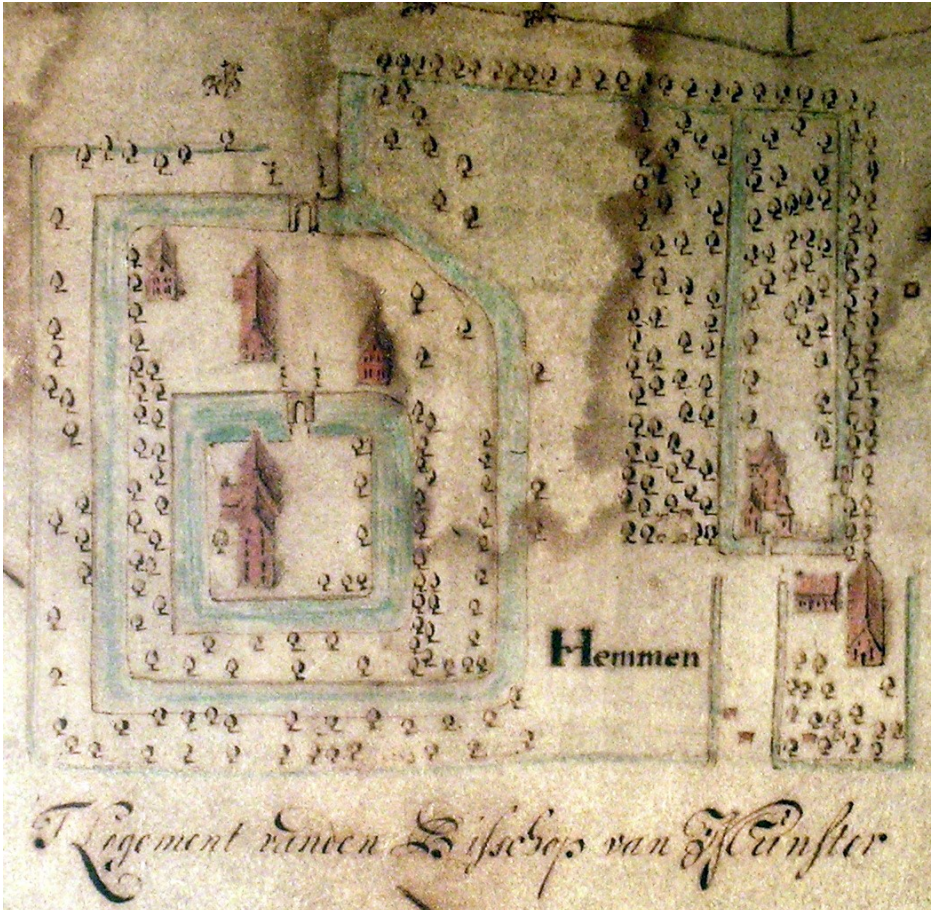 Hemmen
T Legement vanden Bisschop van Münster